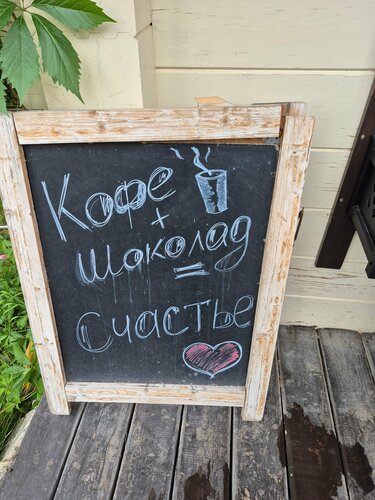 Кофе
+
шоколад
=
Счастье